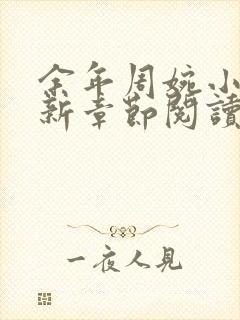 余年周婉小
新章節閱讀
一夜人見